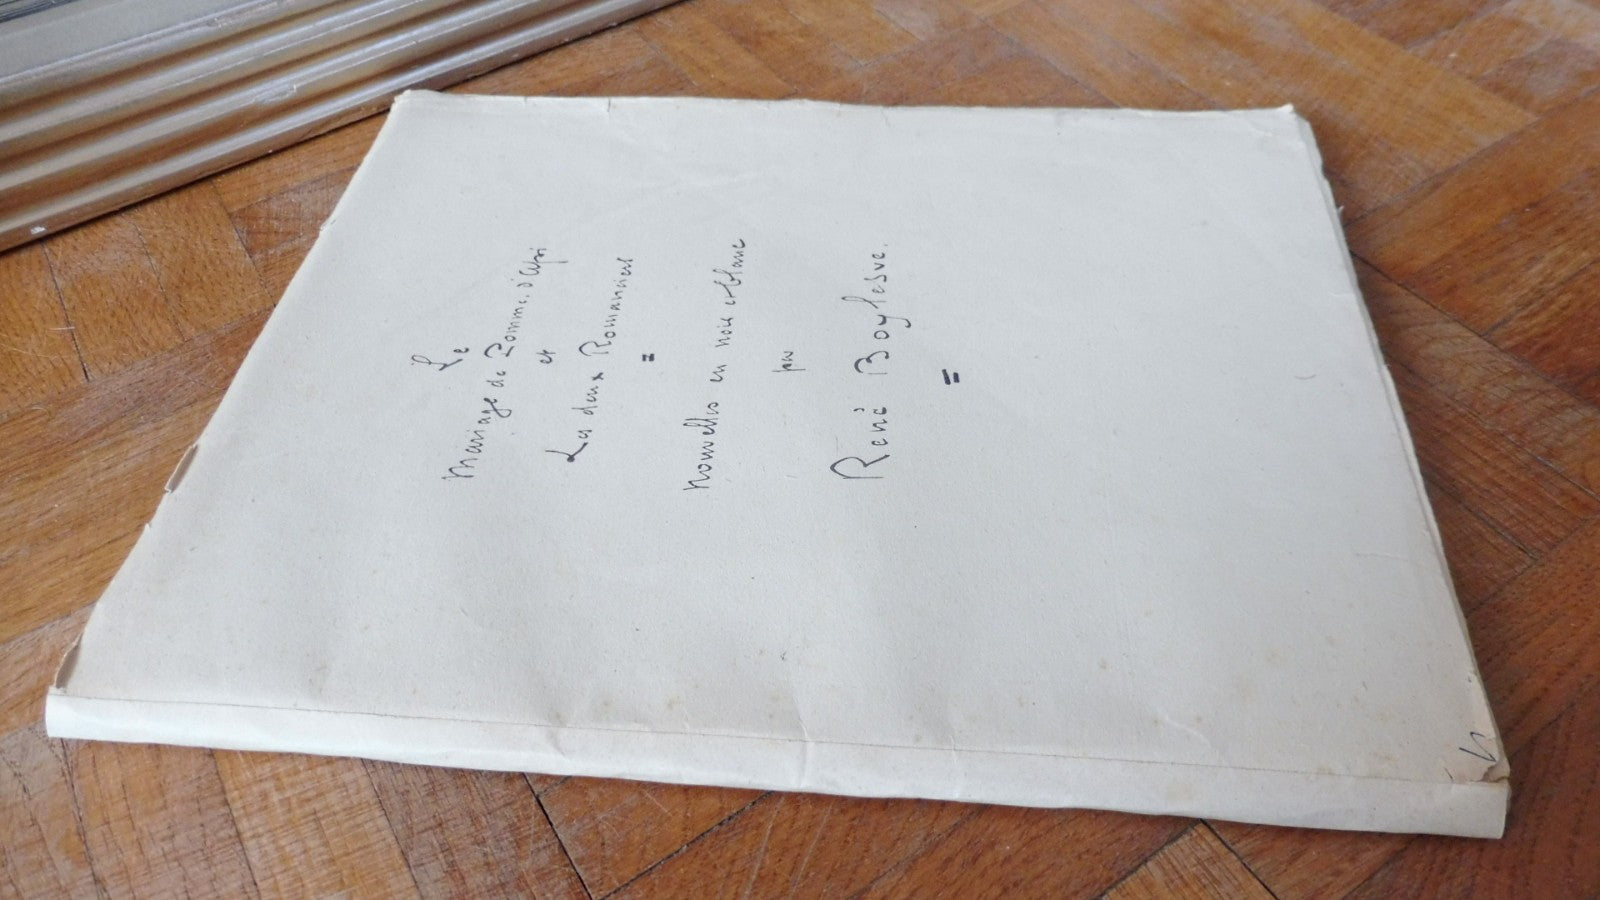 Le
Mariage de Pomme d'Api
et
Les deux Romanciers
=
Nouvelles en noir et blanc
par
René Boylesve.
=